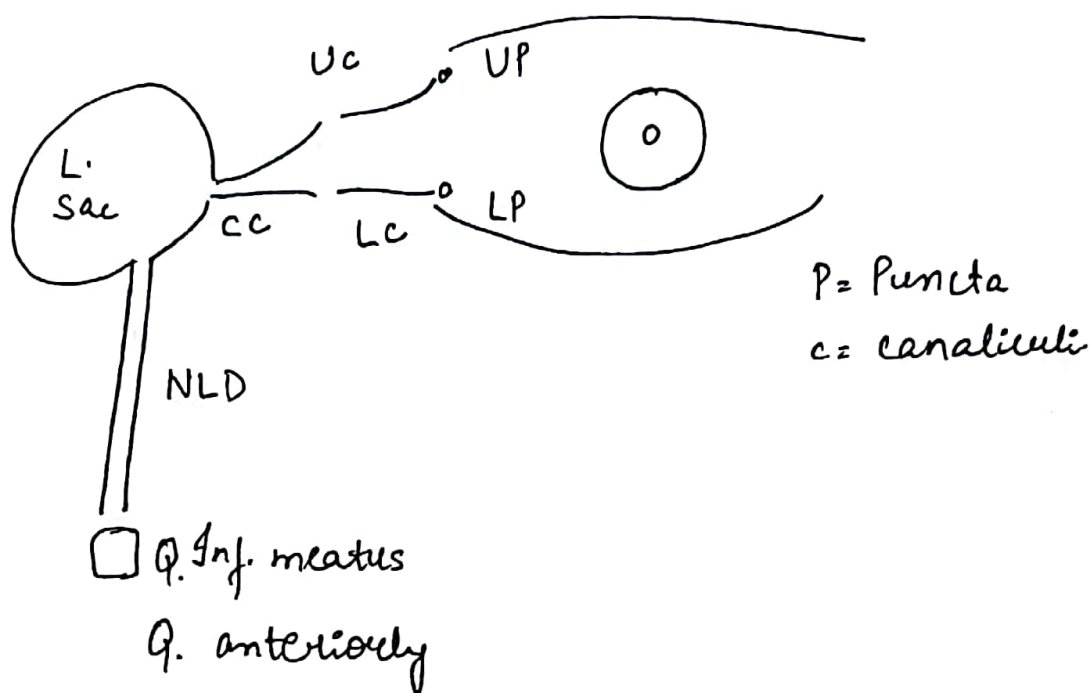 UC
UP
L.
Sac
CC
LC
LP
P= Puncta
C= canaliculi
NLD
Q. Inf. meatus
Q. anteriorly